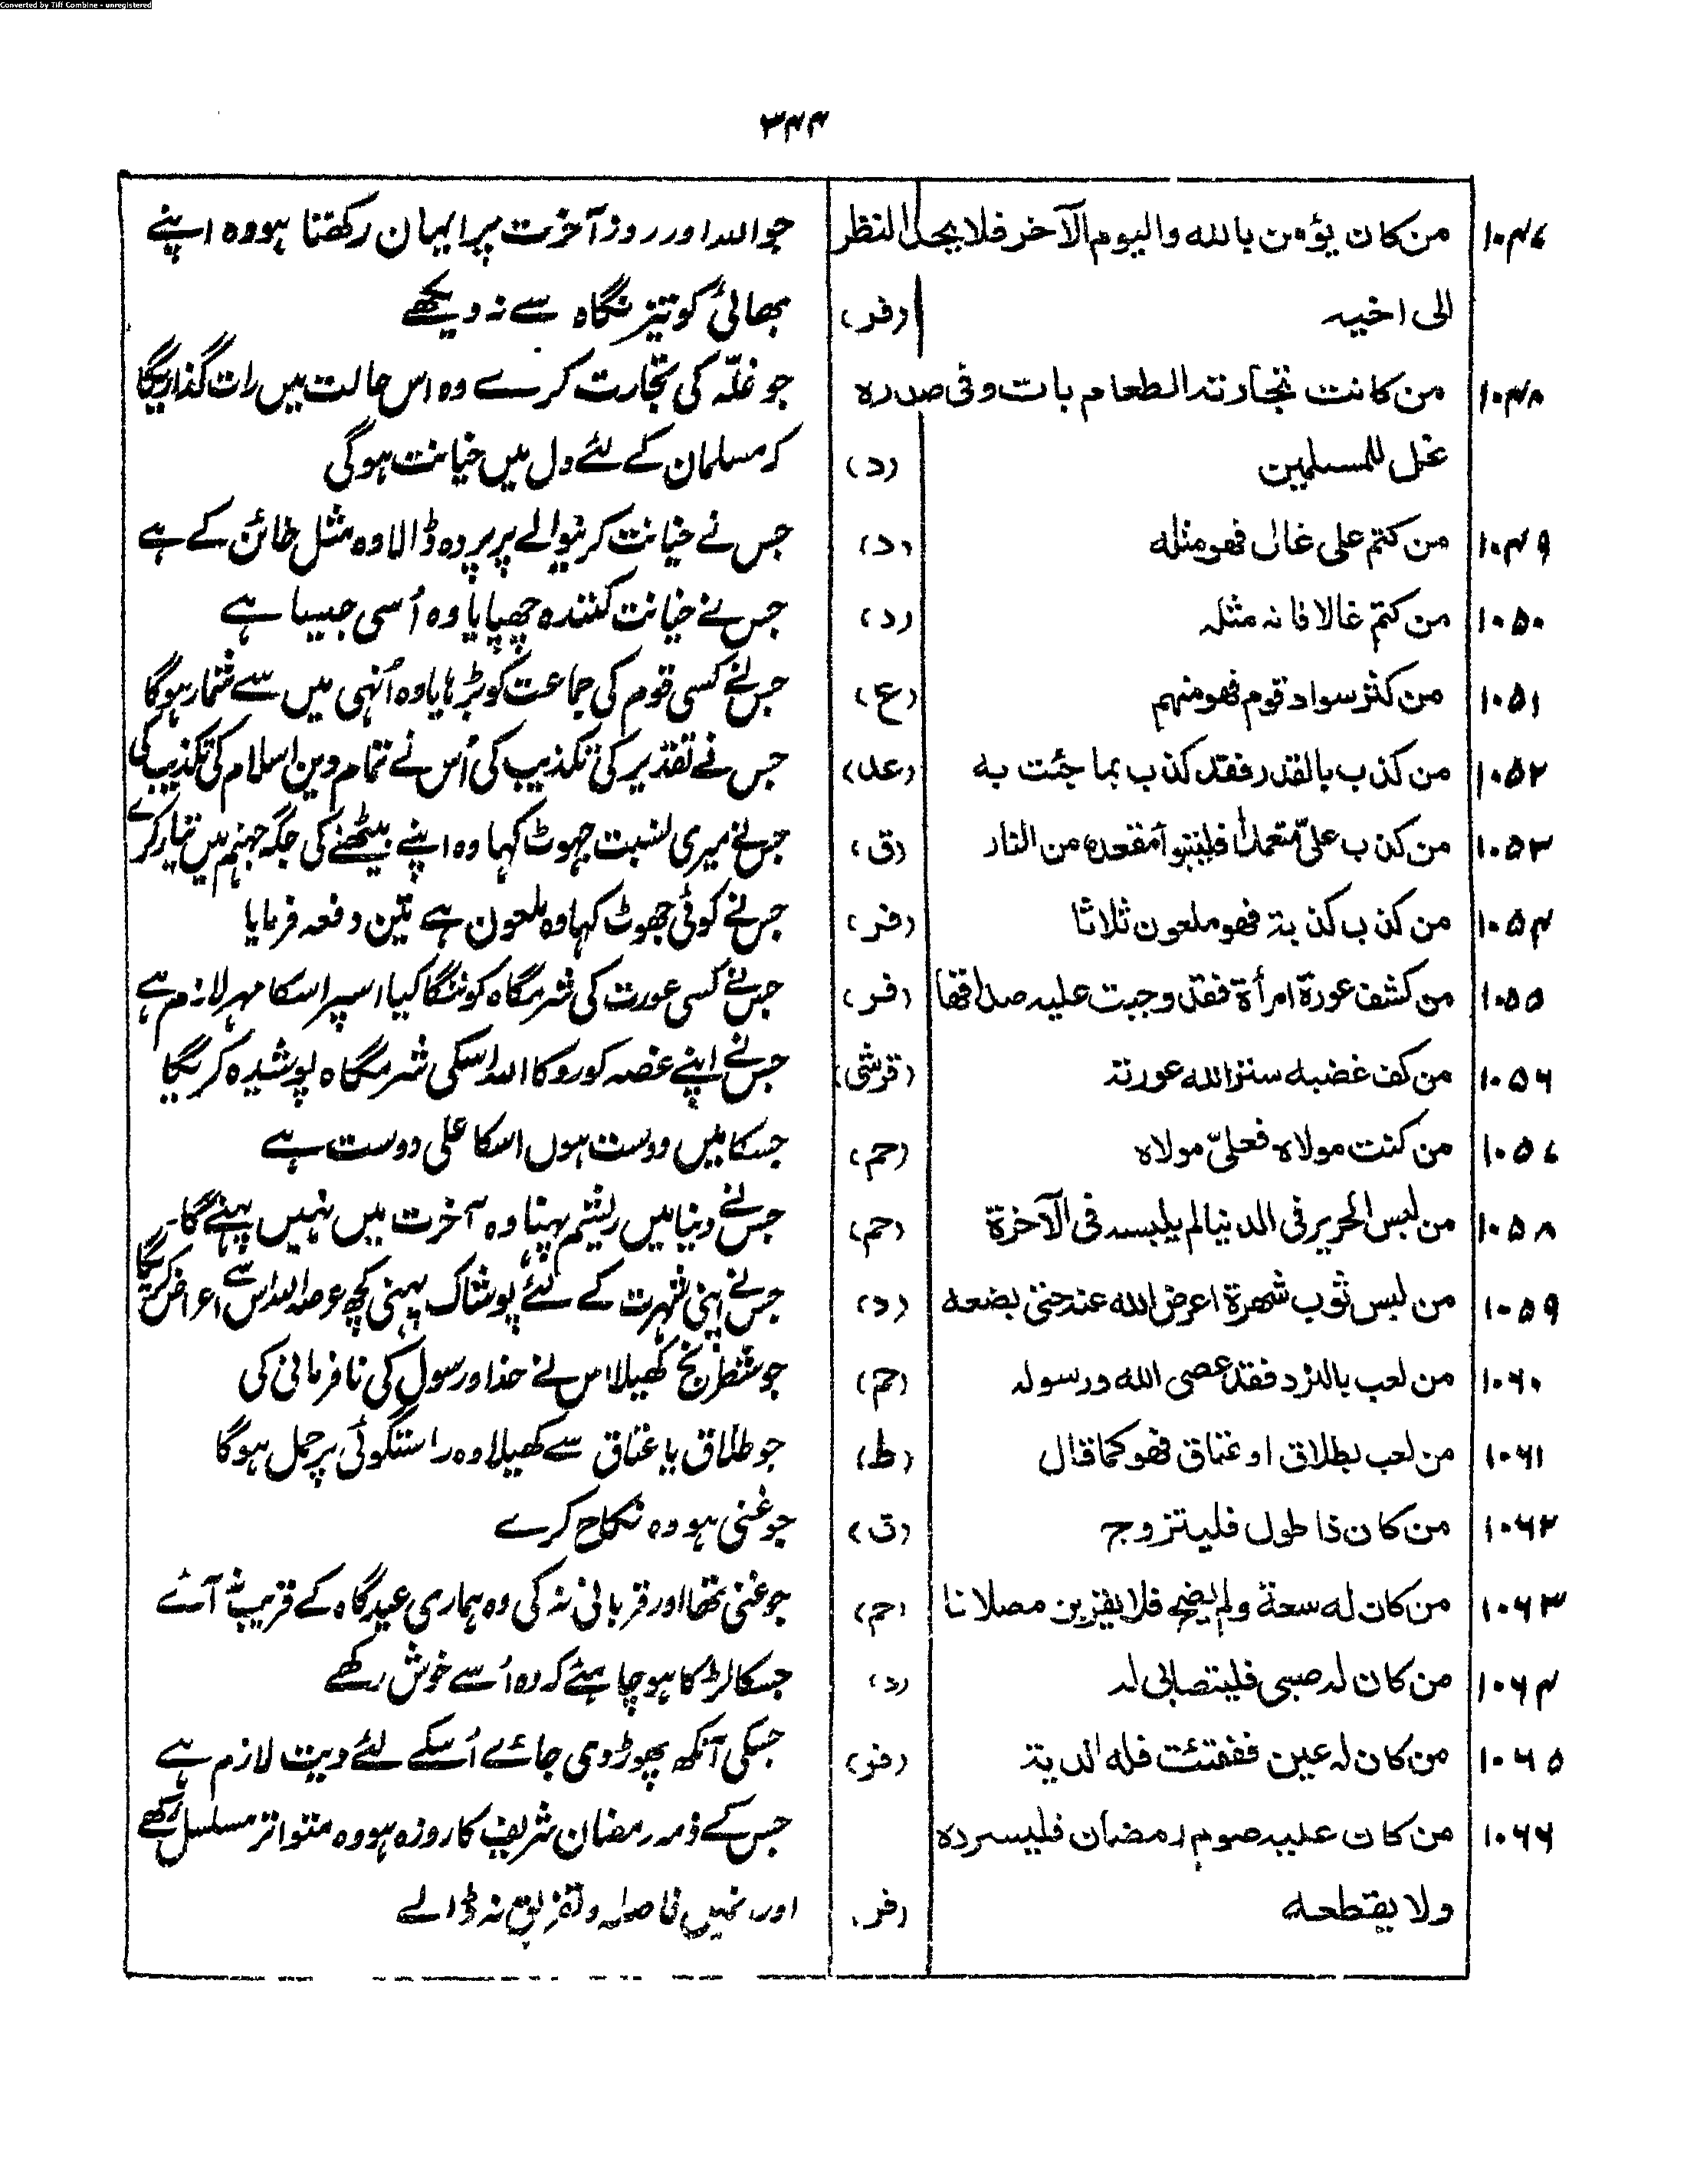 Converted by Tiff Combine - unregistered
۳۴۴
۱۰۴۷ من كان يؤمن بالله واليوم الآخر فلا يحدالنظر جو اللہ اور روز آخرت پر ایمان رکھتا ہو وہ اپنے
الى اخيه (فر) بھائی کو تیز نگاہ سے نہ دیکھے
۱۰۴۸ من كانت تجارته الطعام بات وفى صدره جو غلّہ کی تجارت کرے وہ اس حالت میں رات گذاریگا
غل للمسلمين (د) کہ مسلمان کے لئے دل میں خیانت ہوگی
۱۰۴۹ من كتم على غال فهو مثله (د) جس نے خیانت کرنیوالے پر پردہ ڈالا وہ مثل خائن کے ہے
۱۰۵۰ من كتم غالا فانه مثله (د) جس نے خیانت کنندہ چھپایا وہ اُسی جیسا ہے
۱۰۵۱ من كثر سواد قوم فهو منهم (ع) جس نے کسی قوم کی جماعت کو بڑہایا وہ اُنہی میں سے شمار ہوگا
۱۰۵۲ من كذب بالقدر فقد كذب بما جئت به (عد) جس نے تقدیر کی تکذیب کی اُس نے تمام دین اسلام کی تکذیب کی
۱۰۵۳ من كذب علىّ متعمداً فليتبوأ مقعده من النار (ق) جس نے میری نسبت جہوٹ کہا وہ اپنے بیٹھنے کی جگہ جہنم میں تیار کرے
۱۰۵۴ من كذب كذبة فهو ملعون ثلاثا (فر) جس نے کوئی جھوٹ کہا وہ ملعون ہے تین دفعہ فرمایا
۱۰۵۵ من كشف عورة امرأة فقد وجبت عليه صداقها (فر) جس نے کسی عورت کی شرمگاہ کو ننگا کیا اسپر اسکا مہر لازم ہے
۱۰۵۶ من كف غضبه ستر الله عورته (قرشی) جس نے اپنے غصہ کو روکا اللہ اسکی شرمگاہ پوشیدہ کریگا
۱۰۵۷ من كنت مولاه فعلىّ مولاه (حم) جسکا میں دوست ہوں اسکا علی دوست ہے
۱۰۵۸ من لبس الحرير فى الدنيا لم يلبسه فى الآخرة (حم) جس نے دنیا میں ریشم پہنا وہ آخرت میں نہیں پہنے گا۔
۱۰۵۹ من لبس ثوب شهرة اعرض الله عنه حتى يضعه (د) جس نے اپنی شہرت کے لئے پوشاک پہنی کچھ عرصہ اللہ اس سے اعراض کریگا
۱۰۶۰ من لعب بالنرد فقد عصى الله ورسوله (حم) جو شطرنج کھیلا اس نے خدا و رسول کی نافرمانی کی
۱۰۶۱ من لعب بطلاق او عتاق فهو كما قال (ط) جو طلاق یا عتاق سے کھیلا وہ راستگوئی پر حمل ہوگا
۱۰۶۲ من كان ذا طول فليتزوج (ق) جو غنی ہو وہ نکاح کرے
۱۰۶۳ من كان له سعة ولم يضح فلا يقربن مصلانا (حم) جو غنی تھا اور قربانی نہ کی وہ ہماری عیدگاہ کے قریب نہ آئے
۱۰۶۴ من كان له صبى فليتصابى له (د) جسکا لڑکا ہو چاہئے کہ وہ اُسے خوش رکھے
۱۰۶۵ من كان له عين ففقئت فله الدية (فر) جسکی آنکھ پھوڑ دی جائے اُسکے لئے دیت لازم ہے
۱۰۶۶ من كان عليه صوم رمضان فليسرده جس کے ذمہ رمضان شریف کا روزہ ہو وہ متواتر مسلسل رکھے
ولا يقطعه (فر) اور انمیں فاصلہ و تفریق نہ ڈالے